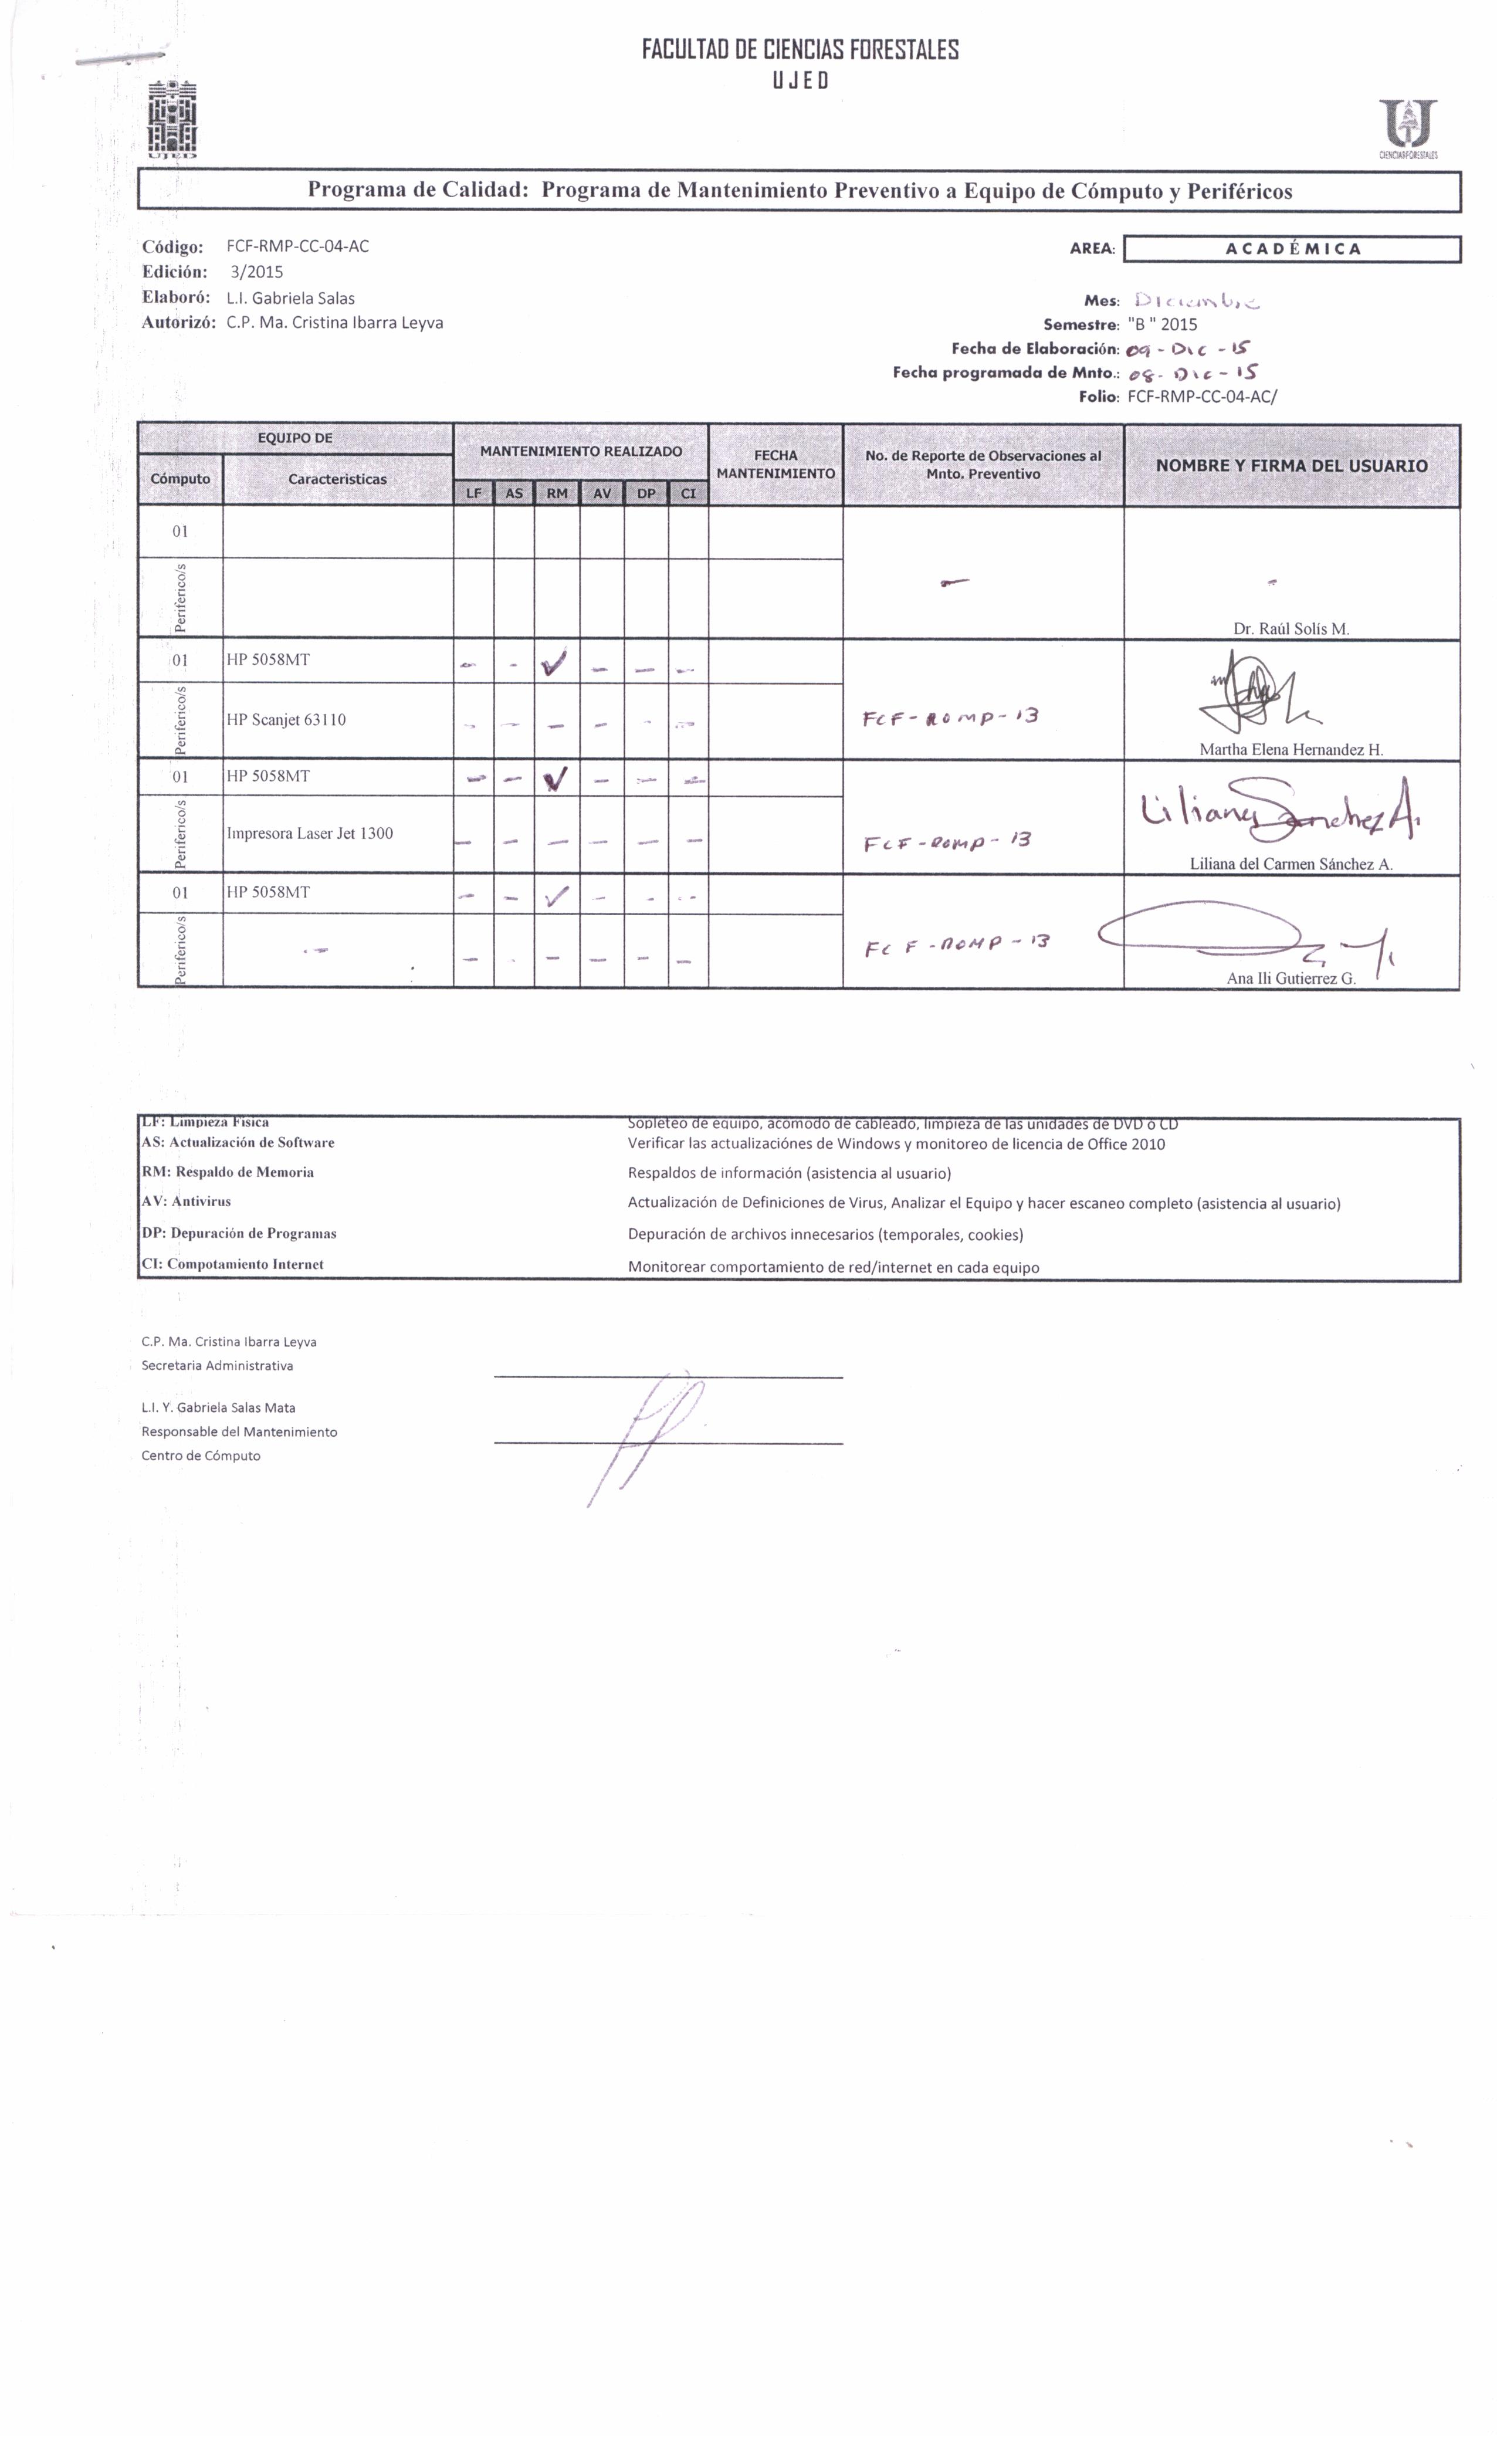 FACULTAD DE CIENCIAS FORESTALES
UJED
UJED
CIENCIAS FORESTALES
Programa de Calidad: Programa de Mantenimiento Preventivo a Equipo de Cómputo y Periféricos
Código: FCF-RMP-CC-04-AC
AREA: ACADÉMICA
Edición: 3/2015
Elaboró: L.I. Gabriela Salas
Mes: Diciembre
Autorizó: C.P. Ma. Cristina Ibarra Leyva
Semestre: "B " 2015
Fecha de Elaboración: 09 - Dic - 15
Fecha programada de Mnto.: 08 - Dic - 15
Folio: FCF-RMP-CC-04-AC/
EQUIPO DE
MANTENIMIENTO REALIZADO
FECHA MANTENIMIENTO
No. de Reporte de Observaciones al Mnto. Preventivo
NOMBRE Y FIRMA DEL USUARIO
Cómputo Caracteristicas LF AS RM AV DP CI
01
Periferico/s — -
Dr. Raúl Solís M.
01 HP 5058MT - - ✓ - - -
Periferico/s HP Scanjet 63110 - - - - - - FCF-ROMP-13
Martha Elena Hernandez H.
01 HP 5058MT - - ✓ - - -
Liliana Sanchez A.
Periferico/s Impresora Laser Jet 1300 - - - - - - FCF-ROMP-13
Liliana del Carmen Sánchez A.
01 HP 5058MT - - ✓ - - -
Periferico/s - - - - - - - FCF-ROMP-13
Ana Ili Gutierrez G.
LF: Limpieza Física Sopleteo de equipo, acomodo de cableado, limpieza de las unidades de DVD o CD
AS: Actualización de Software Verificar las actualizaciónes de Windows y monitoreo de licencia de Office 2010
RM: Respaldo de Memoria Respaldos de información (asistencia al usuario)
AV: Antivirus Actualización de Definiciones de Virus, Analizar el Equipo y hacer escaneo completo (asistencia al usuario)
DP: Depuración de Programas Depuración de archivos innecesarios (temporales, cookies)
CI: Compotamiento Internet Monitorear comportamiento de red/internet en cada equipo
C.P. Ma. Cristina Ibarra Leyva
Secretaria Administrativa
L.I. Y. Gabriela Salas Mata
Responsable del Mantenimiento
Centro de Cómputo